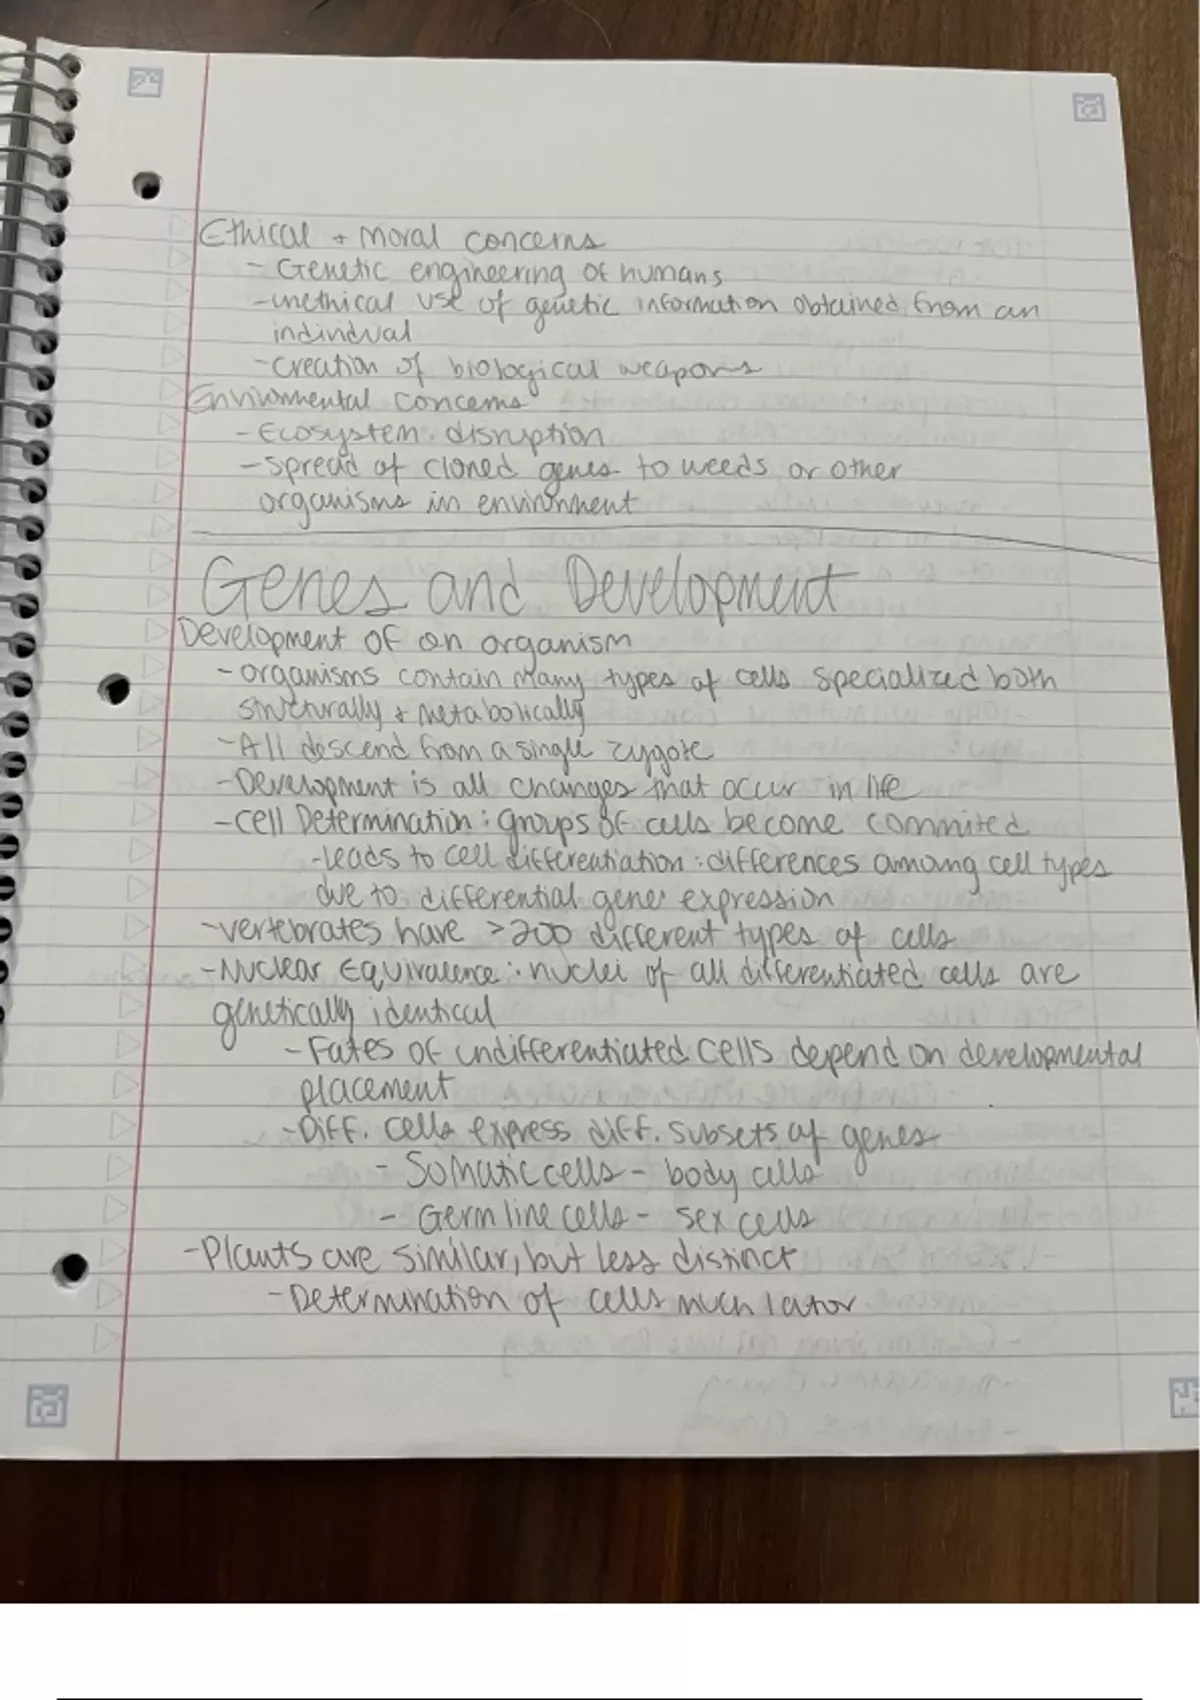 Ethical + Moral concerns
- Genetic engineering of humans
- unethical use of genetic information obtained from an
indindual
- creation of biological weapons
Enviornmental concerns
- Ecosystem disruption
- spread of cloned genes to weeds or other
organisms in environment
Genes and Development
Development of an organism
- organisms contain many types of cells specialized both
structurally + metabolically
- All descend from a single zygote
- Development is all changes that occur in life
- Cell Determination: groups of cells become commited
- leads to cell differentiation: differences among cell types
due to differential gene expression
- vertebrates have >200 different types of cells
- Nuclear Equivalence: nuclei of all differentiated cells are
genetically identical
- Fates of undifferentiated cells depend on developmental
placement
- Diff. cells express diff. subsets of genes
- Somatic cells - body cells
- Germ line cells - sex cells
- Plants are similar, but less distinct
- Determination of cells much lator